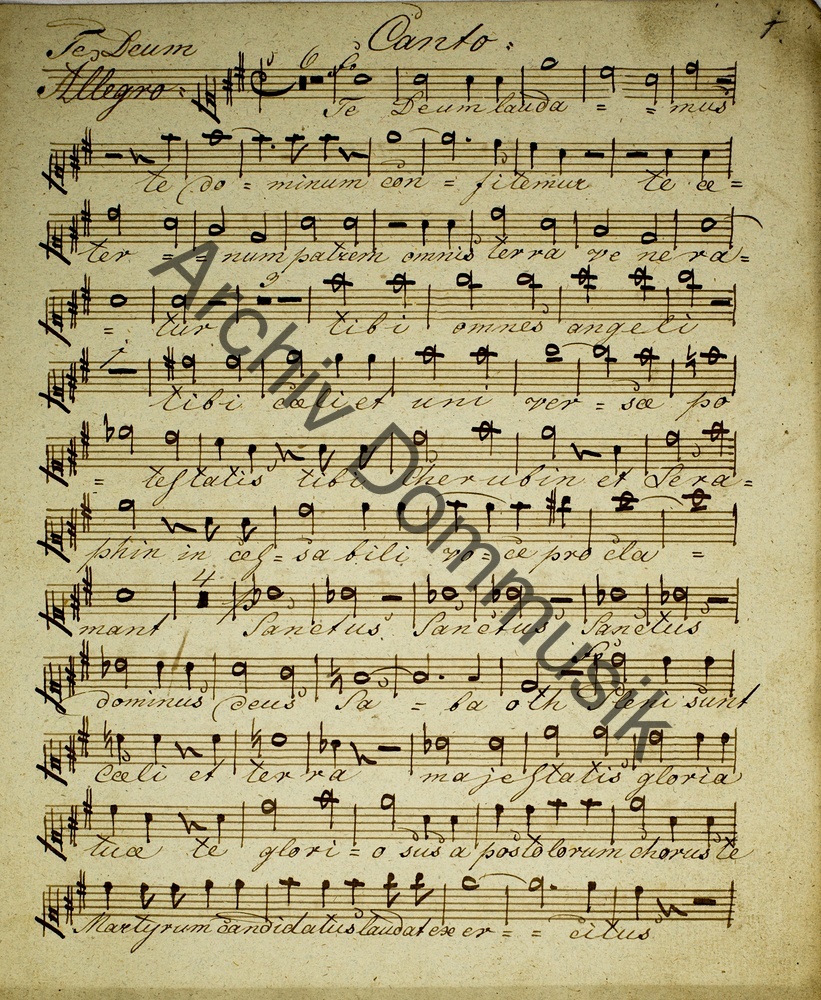 Te Deum Canto: 1.
Allegro: 6 fo
Te Deum lauda = = mus
te do = minum con = fitemur te æ =
ter = = num patrem omnis terra ve ne ra =
3
= tur tibi omnes angeli
1
tibi cæli et uni ver = sæ po
= testatis tibi Cherubin et Sera =
phin in ceß = sabili vo = ce procla =
4 p
mant Sanctus Sanctus Sanctus
fo
dominus deus Sa = ba oth Pleni sunt
Cæli et terra majestatis gloria
tuæ te glori = o sus apostolorum chorus te
Martyrum candidatus laudat ex er = = citus
Archiv Dommusik